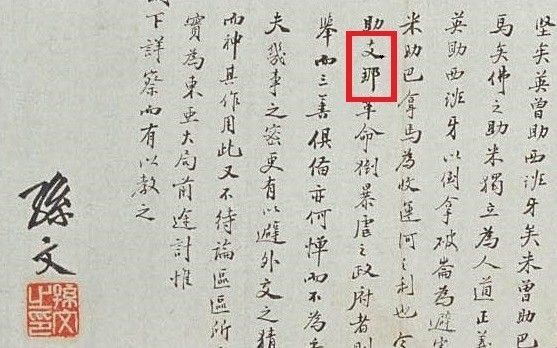 堅矣英曾助西班牙矣米曾助巴
馬矣佛之助米獨立為人道正義
英助西班牙以倒拿破崙為避害
米助巴拿馬為收運河之利也
助支那革命倒暴虐之政府者則
舉而三善俱備亦何憚而不為
夫幾事之密更有以避外交之猜
而神其作用此又不待論區區所
實為東亞大局前途計惟
下詳察而有以教之
孫文
孫文之印